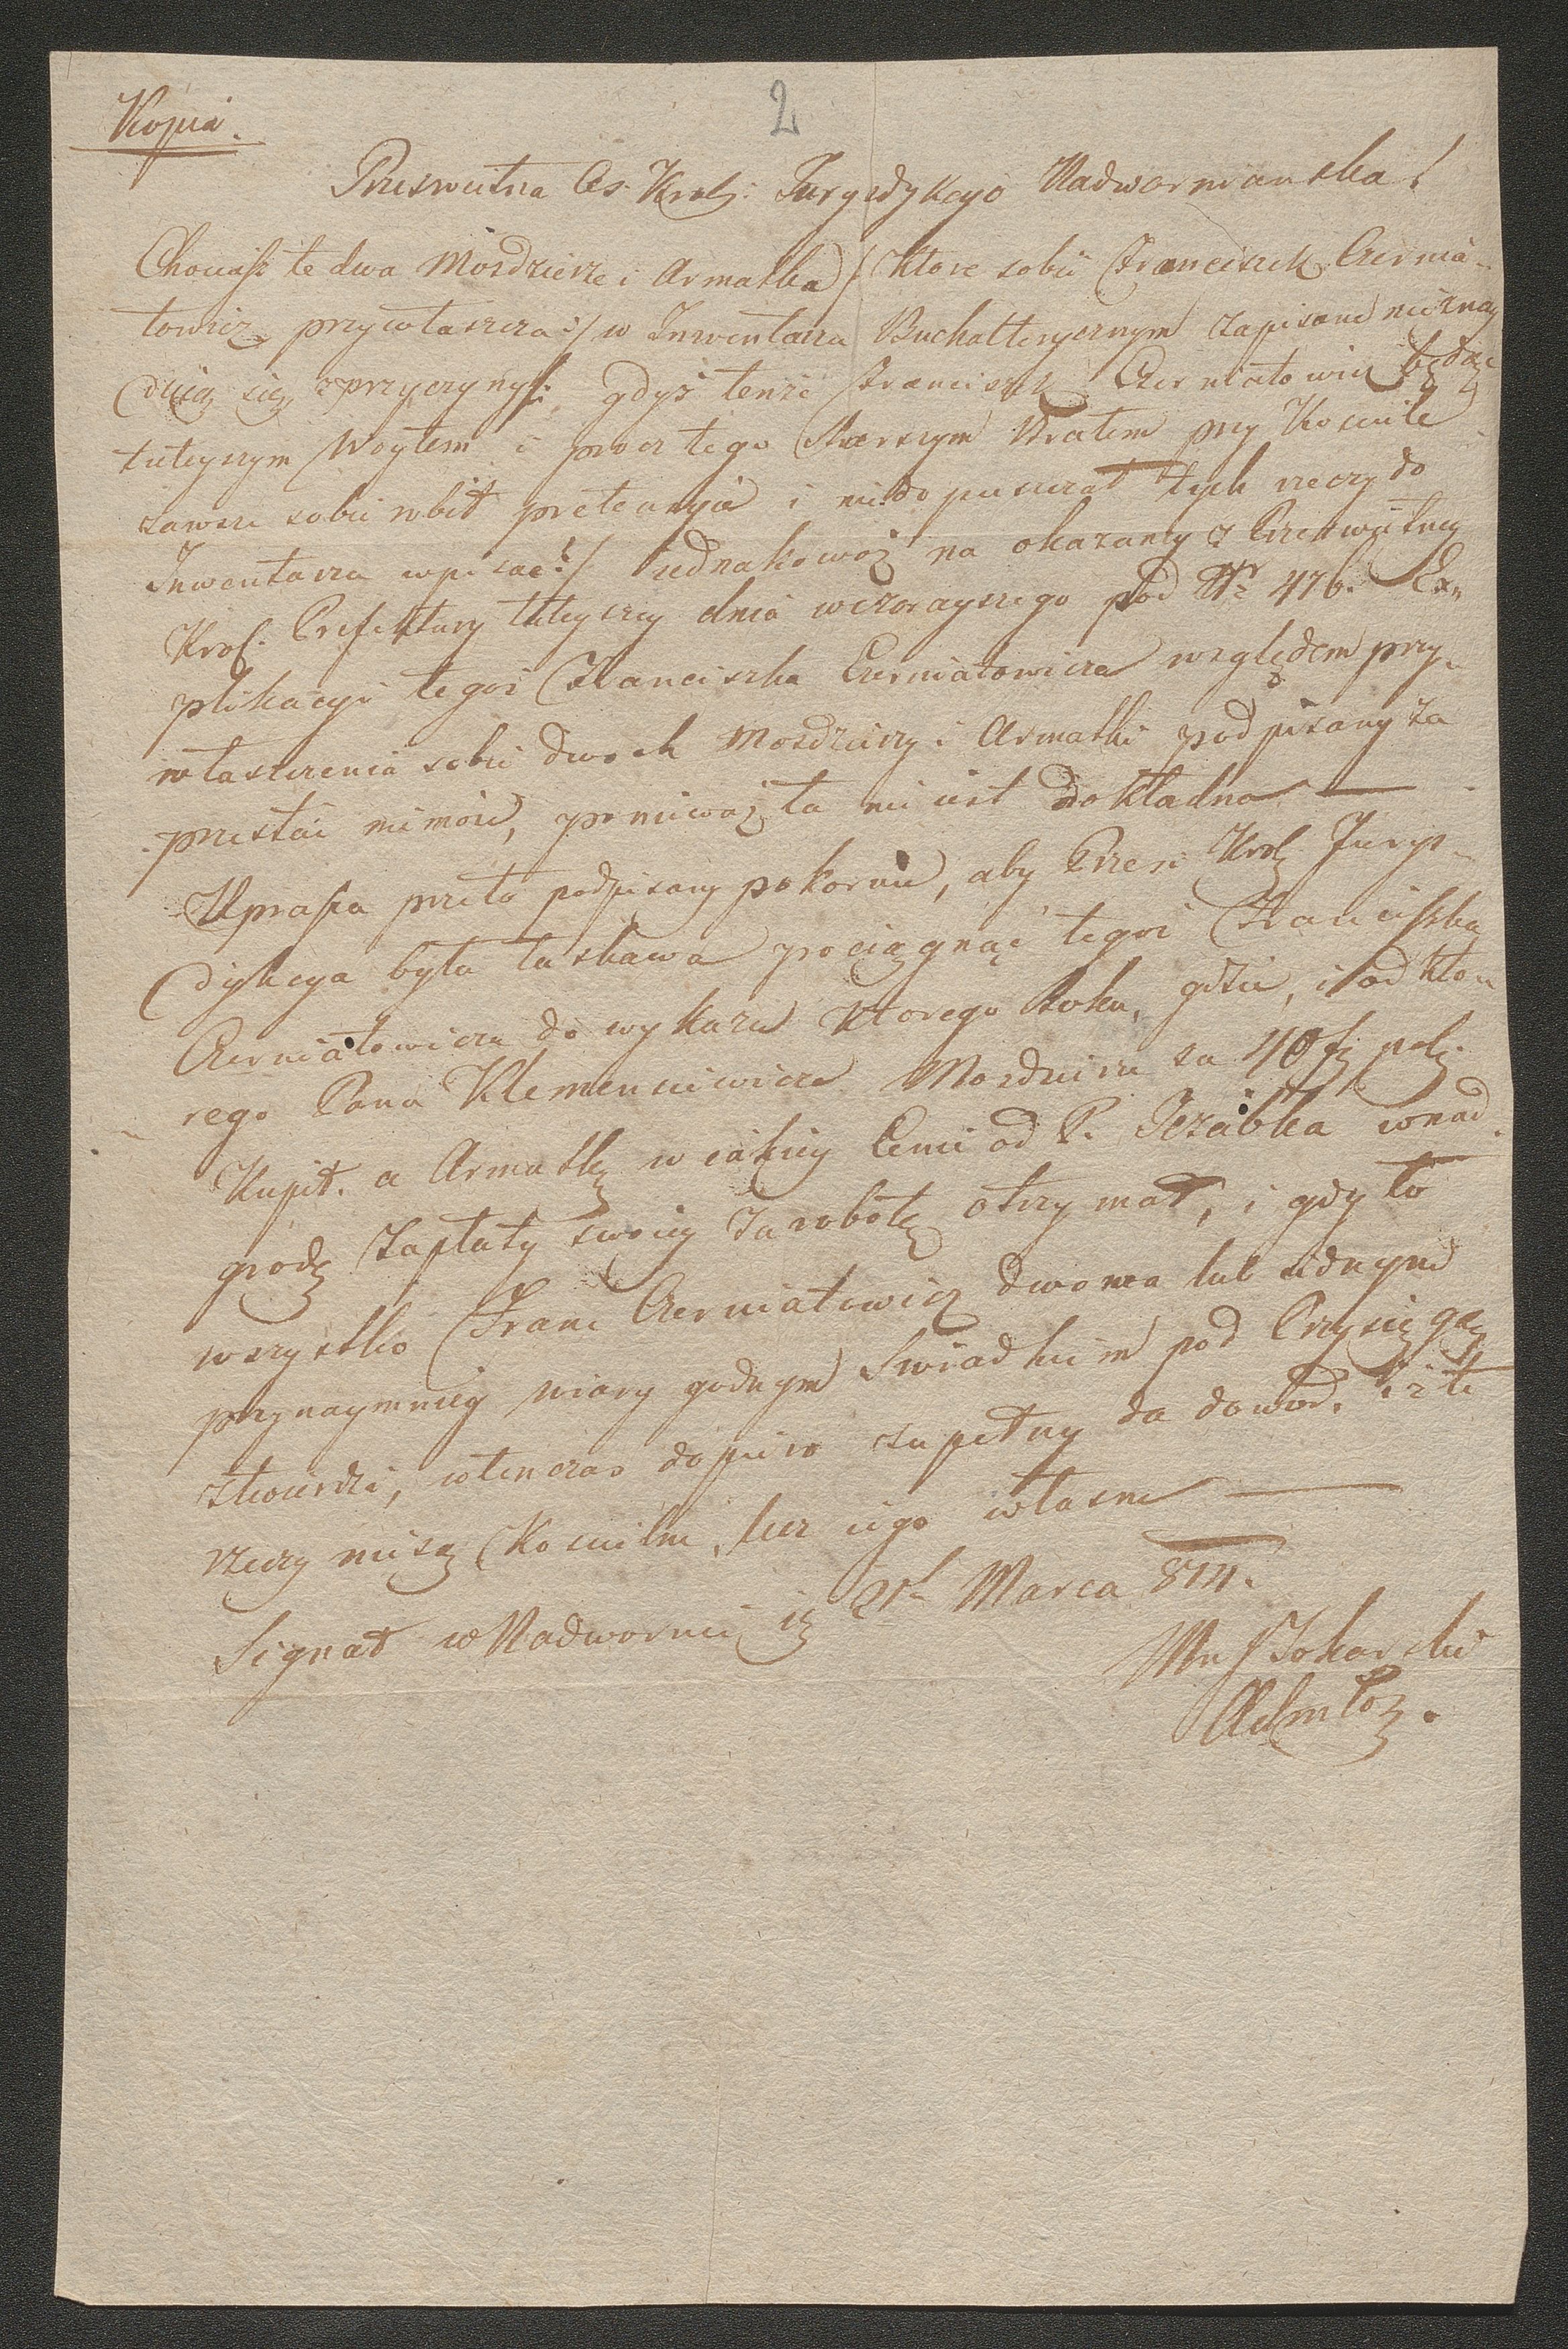 Kopia.
2
Prześwietna Ces. Krol: Jurysdykcyo Nadworniańska!
Chociaß te dwa Mozdzierze i Armatka /: które sobie Franciszek Czernia-
towicz przywłaszcza :/ w Inwentarzu Buchalterycznym zapisane nieznay
duią się, z przyczyny /: gdyż tenże Franciszek Czerniatowicz będąc
tuteyszym Woytem i procz tego Starszym Bratem przy Kosciele
zawsze sobie robił pretensyie i niedopuszczał tych rzeczy do
Inwentarza wpisać :/ jednakowoż na okazaney z Prześwietney
Krol. Prefektury tuteyszey dnia wczorayszego pod Nr 476. Ex-
plikacyi tegoż Franciszka Czerniatowicza względem przy-
własczenia sobie dwoch Mozdzierzy i Armatki podpisany za
przestać niemoże, ponieważ ta nie iest dokładna —
Uprasza przeto podpisany pokornie, aby Prześ: Krol. Jurys-
dykcya była łaskawa pociągnąć tegoż Franciszka
Czerniatowicza do wykazu którego Roku, gdzie, i od kto-
rego Pana Klemensiewicza Mozdzierze za 40 fz pol.
Kupił. a Armatkę w iakiey Cenie od P. Jezabka wnad
grodę zapłaty swoiey za robotę otrzymał, i gdy to
wszystko Franc Czerniatowicz dwoma lub iednym
przynaymniey wiary godnym Swiadkiem pod Przysięgą
stwierdzi, wtenczas dopiero zupełny da dowod, iż te
rzeczy niesą Koscielne, lecz iego własne —
Signat w Nadwornie ię 21 Marca 814.
Tokarski
Admtor.